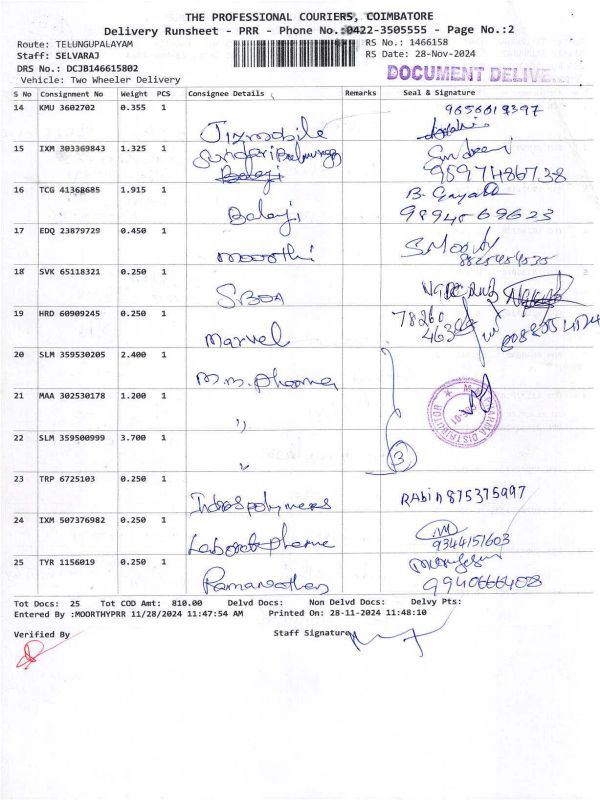 THE PROFESSIONAL COURIERS, COIMBATORE
Delivery Runsheet - PRR - Phone No.:0422-3505555 - Page No.:2
Route: TELUNGUPALAYAM
RS No.: 1466158
Staff: SELVARAJ
RS Date: 28-Nov-2024
DRS No.: DCJB146615802
DOCUMENT DELIVE
Vehicle: Two Wheeler Delivery
S No Consignment No Weight PCS Consignee Details Remarks Seal & Signature
14 KMU 3602702 0.355 1 Jizmobile 9656619397
15 IXM 303369843 1.325 1 9597486738
16 TCG 41368685 1.915 1 Balaji B. Gayat 9894569623
17 EDQ 23879729 0.450 1 Moorthi S Moorthy
18 SVK 65118321 0.250 1
19 HRD 60909245 0.250 1 Marvel 78260
20 SLM 359530205 2.400 1 M.M. Pharma
21 MAA 302530178 1.200 1 "
22 SLM 359500999 3.700 1 " 3
23 TRP 6725103 0.250 1 Indraspolymers RAbin 875375997
24 IXM 507376982 0.250 1 Laborat pharma 9344151603
25 TYR 1156019 0.250 1 Ramanathan 9940666408
Tot Docs: 25 Tot COD Amt: 810.00 Delvd Docs: Non Delvd Docs: Delvy Pts:
Entered By :MOORTHYPRR 11/28/2024 11:47:54 AM Printed On: 28-11-2024 11:48:10
Verified By Staff Signature